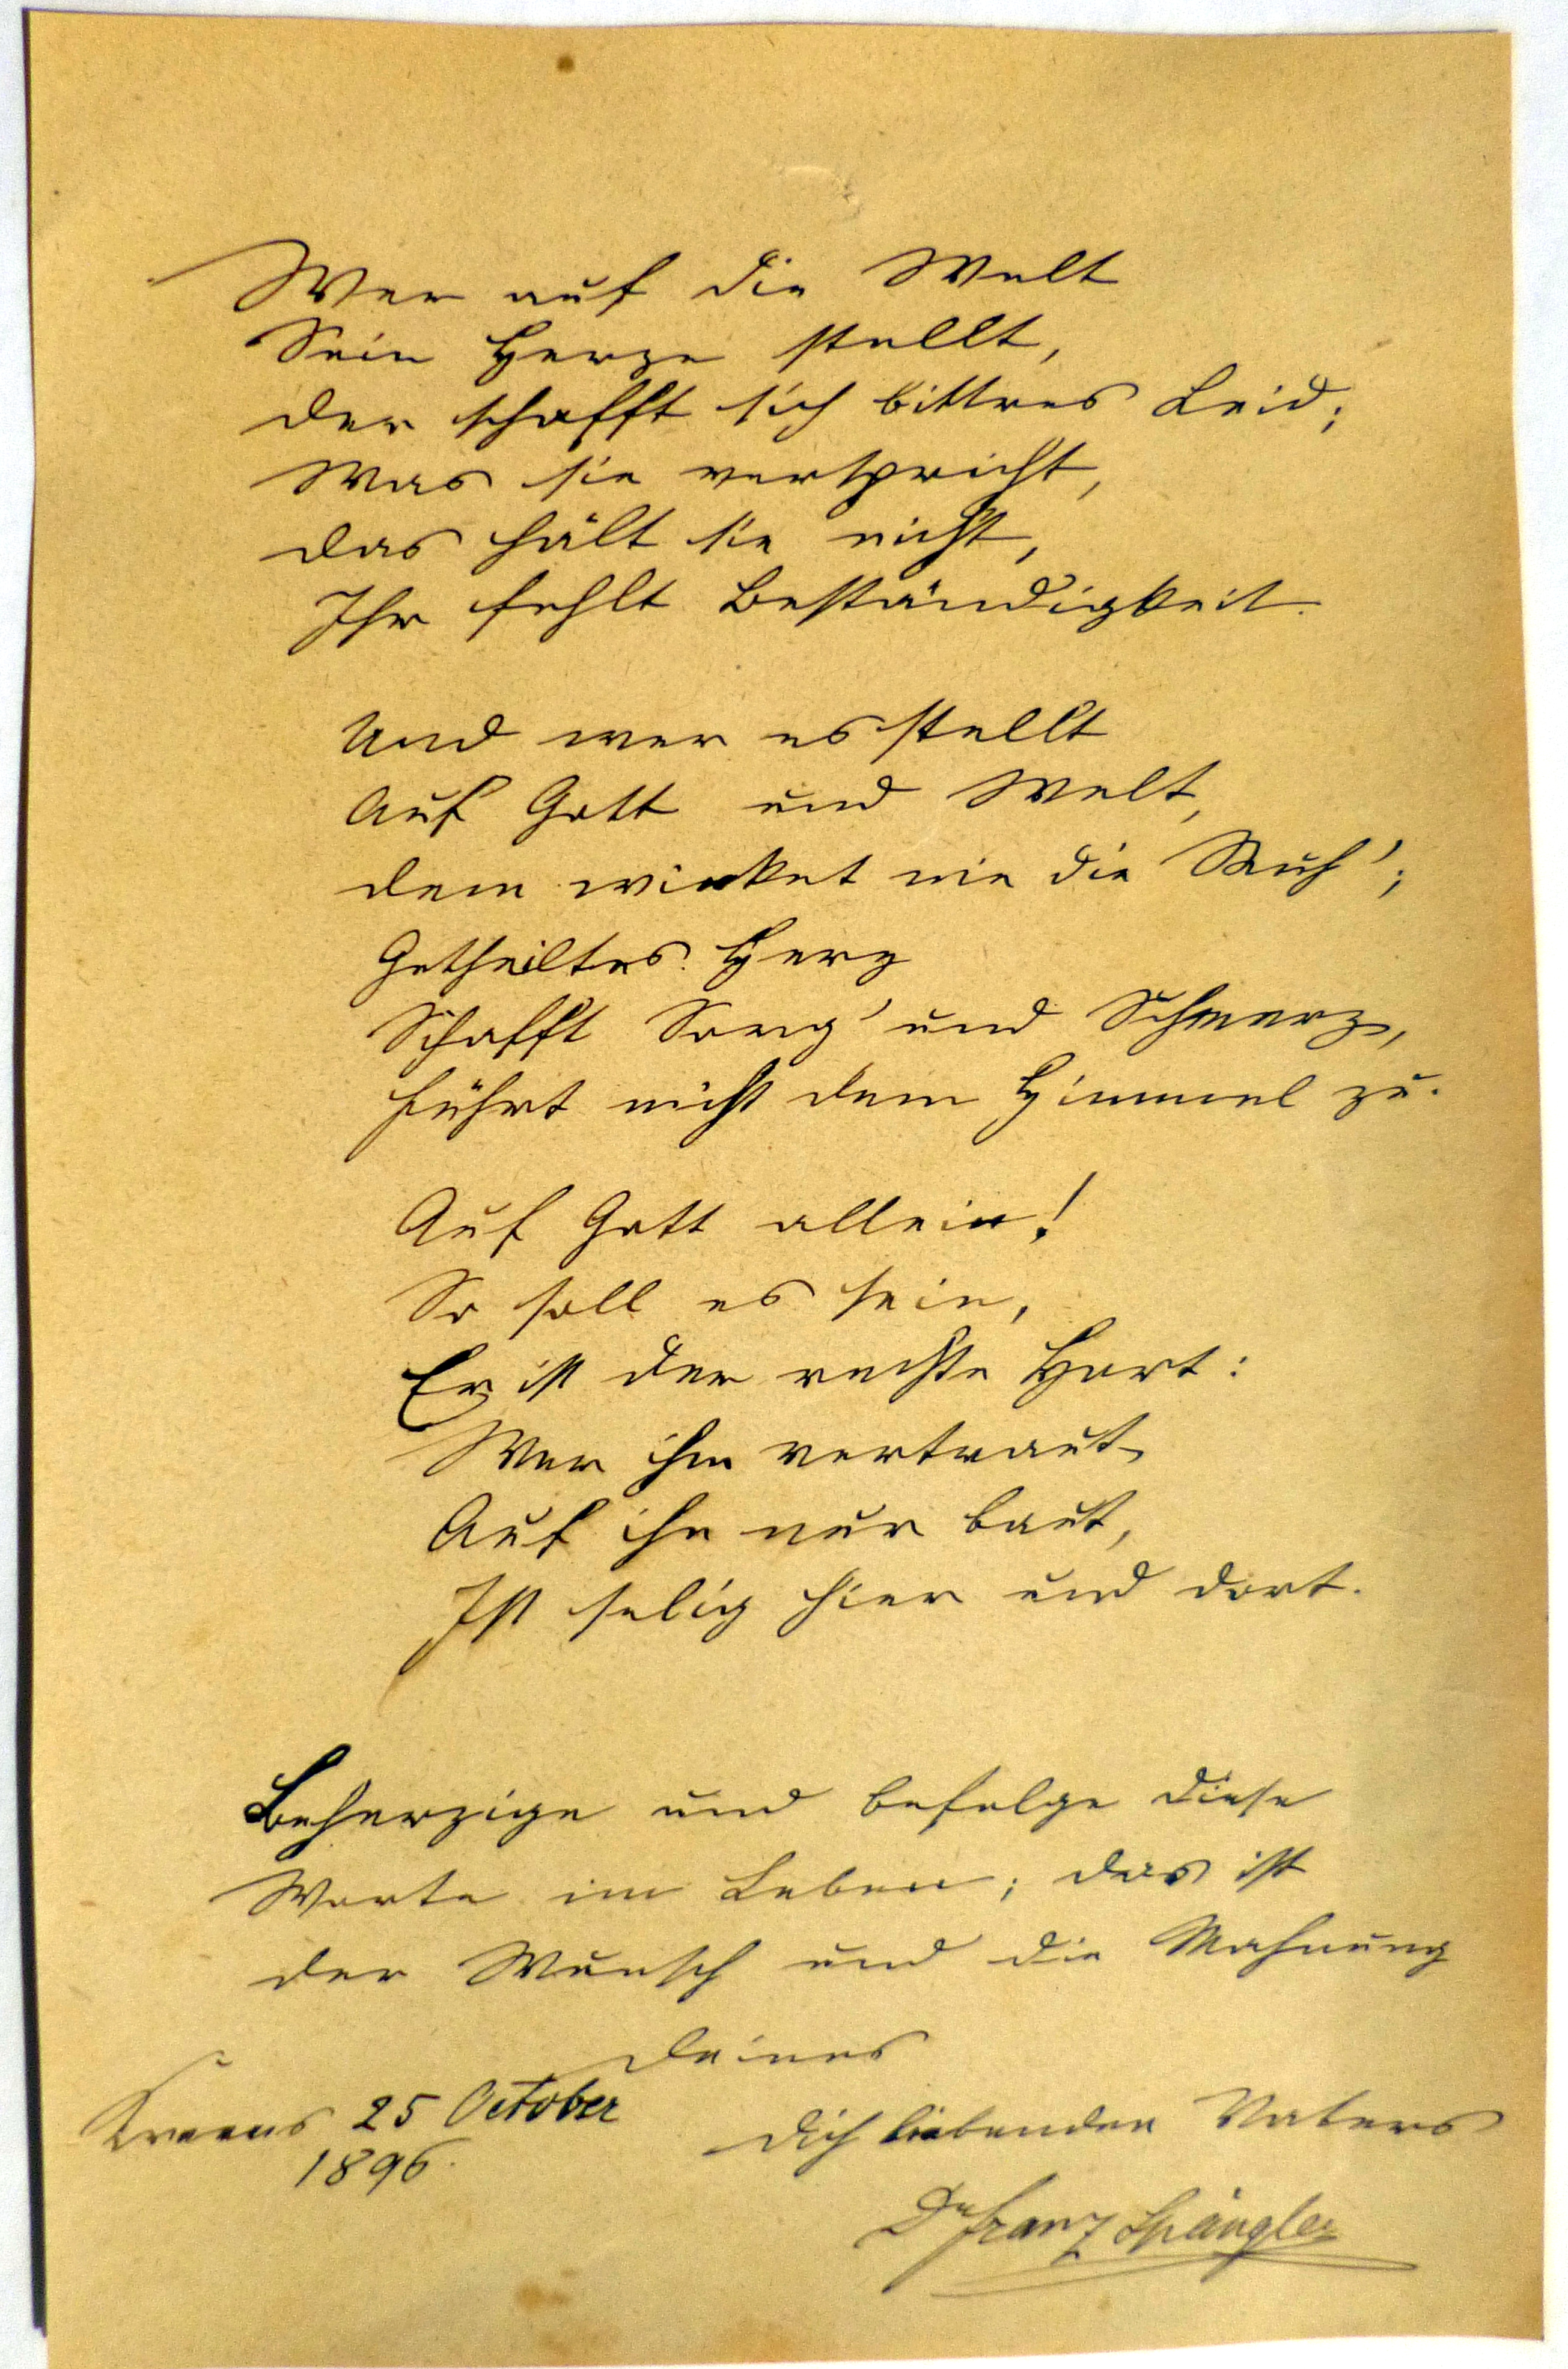 Wer auf die Welt
Sein Herze stellt,
Der schafft sich bittres Leid;
Was sie verspricht,
Das hält sie nicht,
Ihr fehlt Beständigkeit.
Und wer es stellt
Auf Gott und Welt,
Dem winket nie die Ruh';
Getheiltes Herz
Schafft Sorg' und Schmerz,
Führt nicht dem Himmel zu.
Auf Gott allein!
So soll es sein,
Er ist der rechte Hort:
Wer ihm vertraut,
Auf ihn nur baut,
Ist selig hier und dort.
Beherzige und befolge diese
Worte im Leben; das ist
der Wunsch und die Mahnung
Deines
Krems 25 October
1896.
Dich liebenden Vaters
Dr Franz Spängler